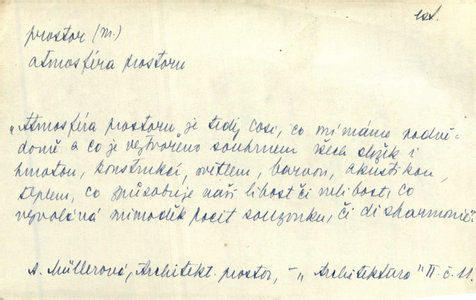 est.
prostor (m.)
atmosféra prostoru
„Atmosféra prostoru" je tedy cosi, co vnímáme podvě-
domě a co je vytvořeno souhrnem všech složek i
hmotou, konstrukcí, světlem, barvou, akustikou
teplem, co způsobuje naši libost či nelibost, co
vyvolává mimoděk pocit souzvuku, či disharmonie.
A. Müllerová, Architekt. prostor, – „Architektura" II. č. 11